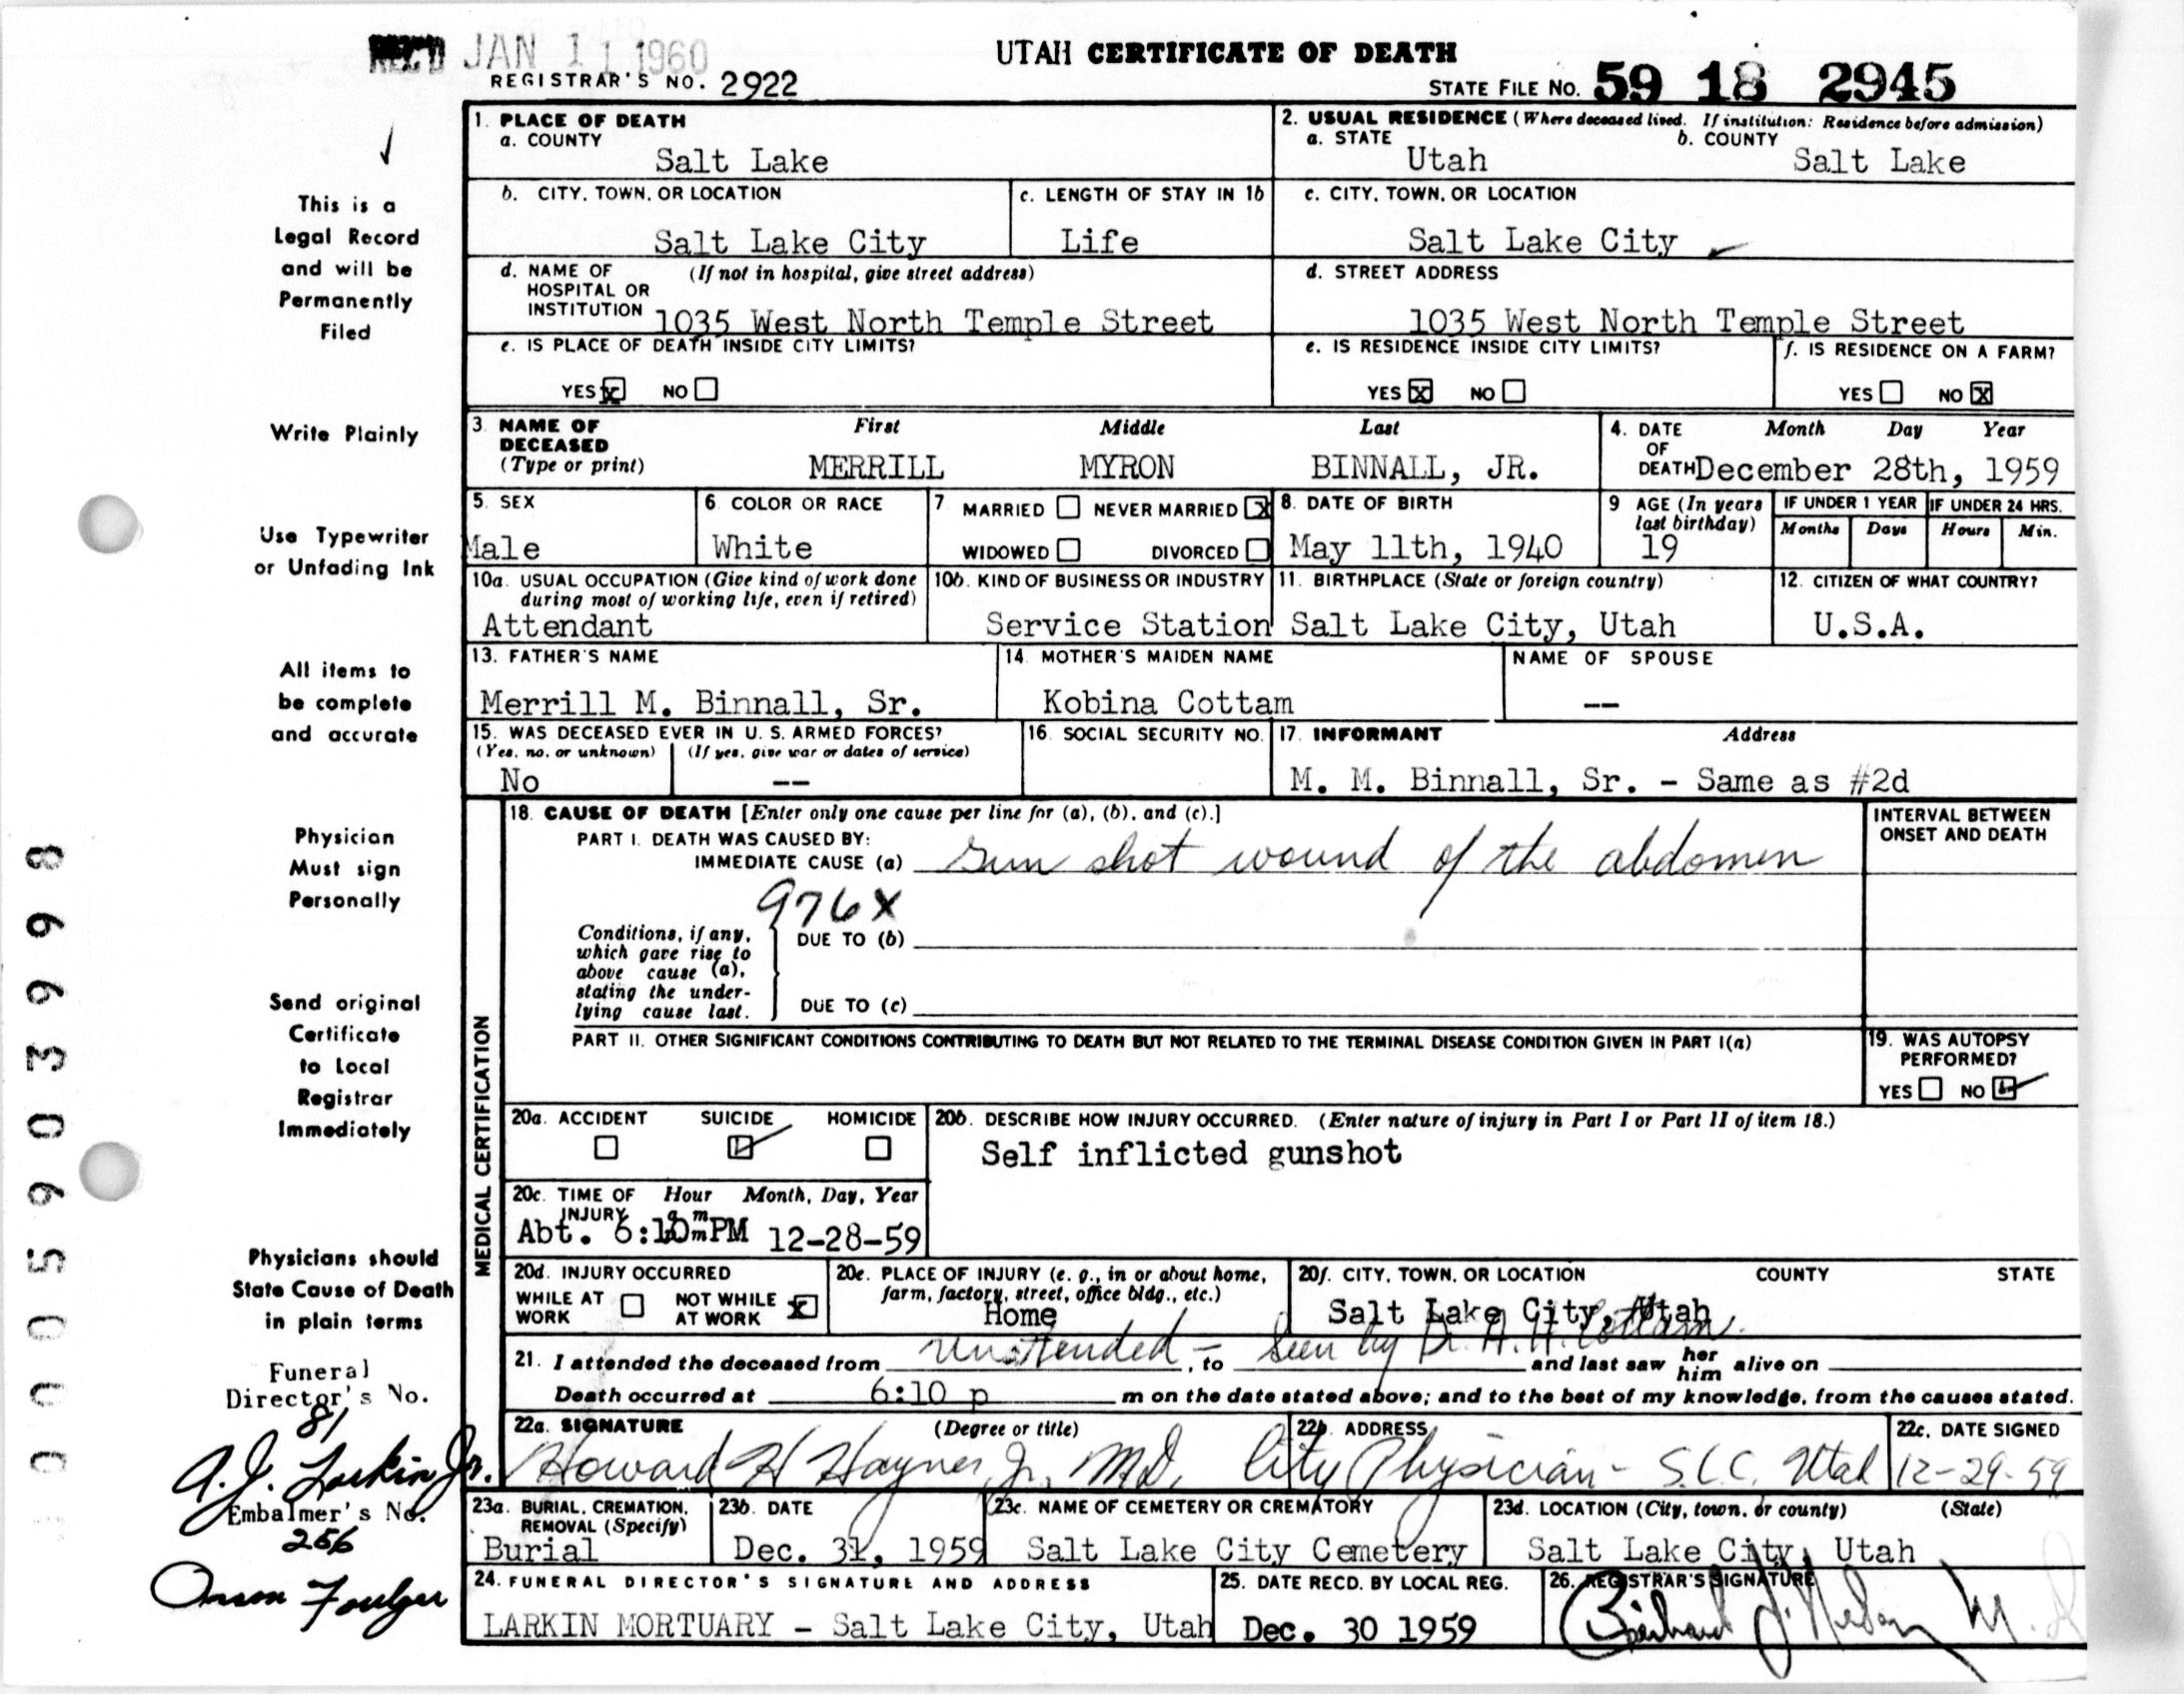 REC'D JAN 11 1960
UTAH CERTIFICATE OF DEATH
REGISTRAR'S NO. 2922
STATE FILE NO. 59 18 2945
This is a
Legal Record
and will be
Permanently
Filed
Write Plainly
Use Typewriter
or Unfading Ink
All items to
be complete
and accurate
Physician
Must sign
Personally
Send original
Certificate
to Local
Registrar
Immediately
Physicians should
State Cause of Death
in plain terms
Funeral
Director's No.
81
A.J. Larkin Jr.
Embalmer's No.
256
Orson Foulger
0005903998
1. PLACE OF DEATH
a. COUNTY
Salt Lake
2. USUAL RESIDENCE (Where deceased lived. If institution: Residence before admission)
a. STATE b. COUNTY
Utah Salt Lake
b. CITY, TOWN, OR LOCATION c. LENGTH OF STAY IN 1b
Salt Lake City Life
c. CITY, TOWN, OR LOCATION
Salt Lake City
d. NAME OF (If not in hospital, give street address)
HOSPITAL OR
INSTITUTION 1035 West North Temple Street
d. STREET ADDRESS
1035 West North Temple Street
e. IS PLACE OF DEATH INSIDE CITY LIMITS?
YES X NO
e. IS RESIDENCE INSIDE CITY LIMITS? f. IS RESIDENCE ON A FARM?
YES X NO YES NO X
3. NAME OF First Middle Last
DECEASED
(Type or print) MERRILL MYRON BINNALL, JR.
4. DATE Month Day Year
OF
DEATH December 28th, 1959
5. SEX 6. COLOR OR RACE 7. MARRIED NEVER MARRIED X 8. DATE OF BIRTH 9 AGE (In years IF UNDER 1 YEAR IF UNDER 24 HRS.
last birthday) Months Days Hours Min.
Male White WIDOWED DIVORCED May 11th, 1940 19
10a. USUAL OCCUPATION (Give kind of work done 10b. KIND OF BUSINESS OR INDUSTRY 11. BIRTHPLACE (State or foreign country) 12. CITIZEN OF WHAT COUNTRY?
during most of working life, even if retired)
Attendant Service Station Salt Lake City, Utah U.S.A.
13. FATHER'S NAME 14. MOTHER'S MAIDEN NAME NAME OF SPOUSE
Merrill M. Binnall, Sr. Kobina Cottam --
15. WAS DECEASED EVER IN U. S. ARMED FORCES? 16. SOCIAL SECURITY NO. 17. INFORMANT Address
(Yes, no, or unknown) (If yes, give war or dates of service)
No -- M. M. Binnall, Sr. - Same as #2d
MEDICAL CERTIFICATION
18. CAUSE OF DEATH [Enter only one cause per line for (a), (b), and (c).] INTERVAL BETWEEN
ONSET AND DEATH
PART I. DEATH WAS CAUSED BY:
IMMEDIATE CAUSE (a) Gun shot wound of the abdomen
976X
Conditions, if any, DUE TO (b)
which gave rise to
above cause (a),
stating the under-
lying cause last. DUE TO (c)
PART II. OTHER SIGNIFICANT CONDITIONS CONTRIBUTING TO DEATH BUT NOT RELATED TO THE TERMINAL DISEASE CONDITION GIVEN IN PART I(a)
19. WAS AUTOPSY
PERFORMED?
YES NO
20a. ACCIDENT SUICIDE HOMICIDE
20b. DESCRIBE HOW INJURY OCCURRED. (Enter nature of injury in Part I or Part II of item 18.)
Self inflicted gunshot
20c. TIME OF Hour Month, Day, Year
INJURY a m
Abt. 6:10 m PM 12-28-59
20d. INJURY OCCURRED
WHILE AT NOT WHILE X
WORK AT WORK
20e. PLACE OF INJURY (e. g., in or about home,
farm, factory, street, office bldg., etc.)
Home
20f. CITY, TOWN, OR LOCATION COUNTY STATE
Salt Lake City, Utah
21. I attended the deceased from Unattended -, to Seen by Dr. A. H. Cottam. and last saw her him alive on
Death occurred at 6:10 p m on the date stated above; and to the best of my knowledge, from the causes stated.
22a. SIGNATURE (Degree or title) 22b. ADDRESS 22c. DATE SIGNED
Howard H Haynes, Jr., M.D. City Physician - S.L.C. Utah 12-29-59
23a. BURIAL, CREMATION, 23b. DATE 23c. NAME OF CEMETERY OR CREMATORY 23d. LOCATION (City, town, or county) (State)
REMOVAL (Specify)
Burial Dec. 31, 1959 Salt Lake City Cemetery Salt Lake City, Utah
24. FUNERAL DIRECTOR'S SIGNATURE AND ADDRESS 25. DATE RECD. BY LOCAL REG. 26. REGISTRAR'S SIGNATURE
LARKIN MORTUARY - Salt Lake City, Utah Dec. 30 1959 M.D